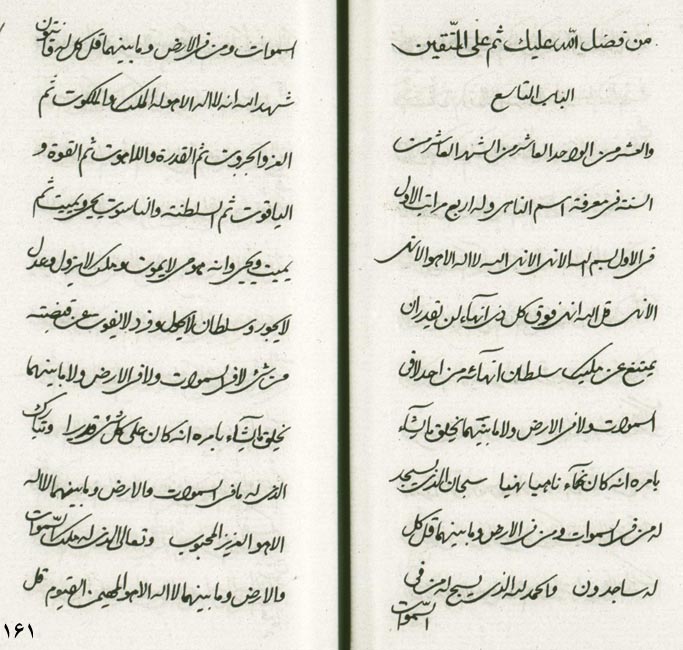 من فضل الله عليك ثم على المتقين
الباب التاسع
والعشر من الواحد العاشر من الشهر العاشر من
السنة فى معرفة اسم الناهى وله اربع مراتب الاول
فى الاول بسم الله الانهى الانهى الله لا اله الا هو الانهى
الانهى قل الله انهى فوق كل ذى انهآء لن يقدر ان
يمتنع عن مليك سلطان انهائه من احد لا فى
السموات ولا فى الارض ولا ما بينهما يخلق ما يشآء
بامره انه كان نهآء ناهيا نهيا سبحان الذى يسجد
له من فى السموات ومن فى الارض وما بينهما قل كل
له ساجدون والحمد لله الذى يسبح له من فى
السموات
السموات ومن فى الارض وما بينهما قل كل له قانتون
شهد الله انه لا اله الا هو له الملك والملكوت ثم
العز والجبروت ثم القدرة واللاهوت ثم القوة و
الياقوت ثم السلطنة والناسوت يحيى ويميت ثم
يميت ويحيى وانه هو حى لا يموت وملك لا يزول وعدل
لا يجور وسلطان لا يحول وفرد لا يفوت عن قبضته
من شئ لا فى السموات ولا فى الارض ولا ما بينهما
يخلق ما يشآء بامره انه كان على كل شئ قديرا وتبارك
الذى له ما فى السموات والارض وما بينهما لا اله
الا هو العزيز المحبوب وتعالى الذى له ملك السموات
والارض وما بينهما لا اله الا هو المهيمن القيوم قل
١٦١